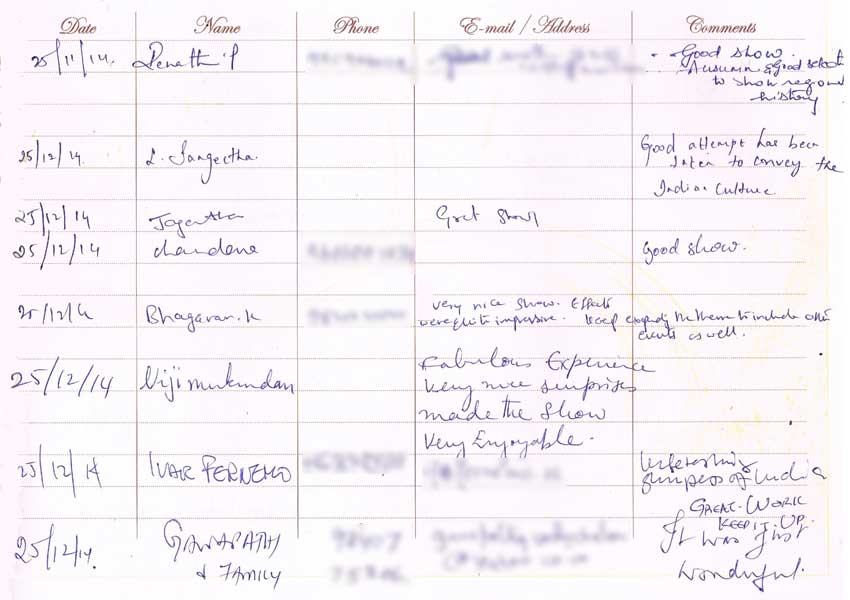 Date Name Phone E-mail / Address Comments
25/11/14. P Good show.
Good
to show regional
history
25/12/14. L. Sangeetha. Good attempt has been
taken to convey the
Indian Culture
25/12/14 Gret Show
25/12/14 chandana Good show.
25/12/14 Bhagavan. K very nice show. Effects
were quite impressive. Keep expanding the theme to include other
events as well.
25/12/14 Viji mukundan Fabulous Experience
Very nice surprises
made the Show
Very Enjoyable.
25/12/14 IVAR FERNEMO Interesting
glimpses of India
GREAT WORK
KEEP IT UP.
25/12/14. GANAPATHI It was Just
& FAMILY wonderful.